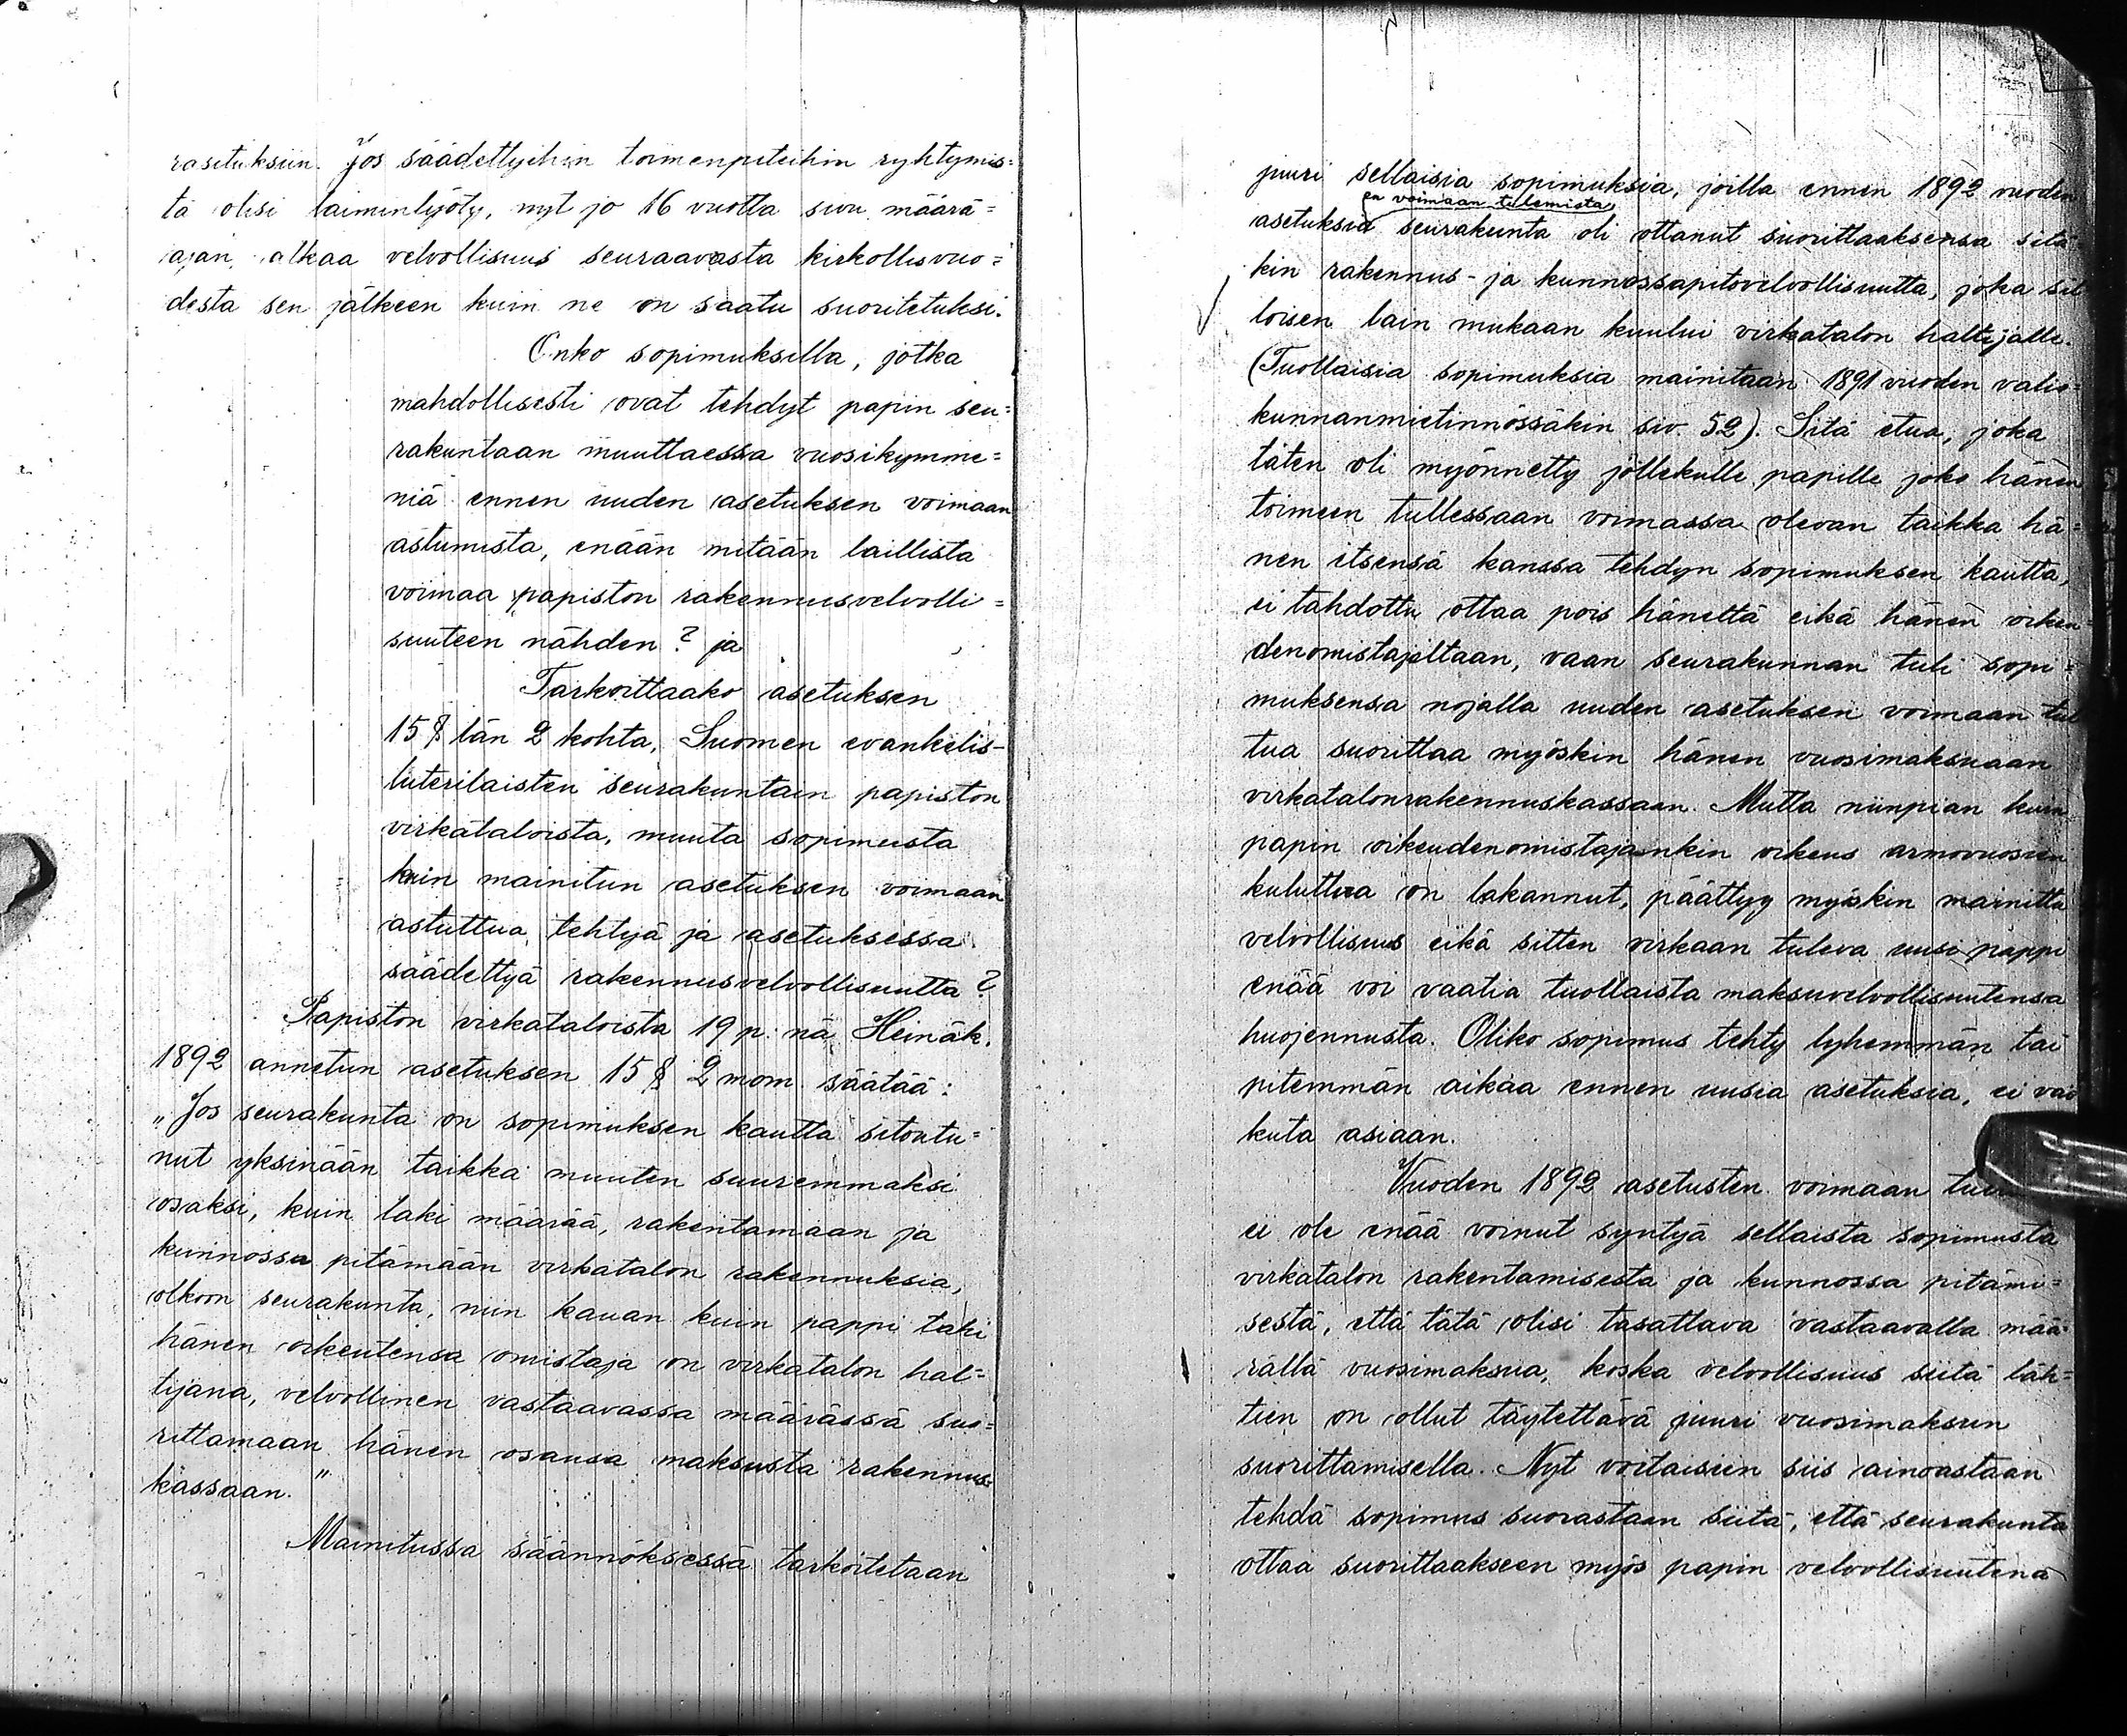 rasituksiin. Jos säädettyihin toimenpiteihin ryhtymis=
tä olisi laiminlyöty, nyt jo 16 vuotta sivu määrä=
ajan, alkaa velvollisuus seuraavasta kirkollisvuo=
desta sen jälkeen kuin ne on saatu suoritetuksi.
Onko sopimuksilla, jotka
mahdollisesti ovat tehdyt papin seu=
rakuntaan muuttaessa vuosikymme=
niä ennen uuden asetuksen voimaan
astumista, enään mitään laillista
voimaa papiston rakennusvelvolli=
suuteen nähden? ja
Tarkoittaako asetuksen
15 § län 2 kohta, Suomen evankelis-
luterilaisten seurakuntain papiston
virkataloista, muuta sopimusta
kuin mainitun asetuksen voimaan
astuttua tehtyä ja asetuksessa
säädettyä rakennusvelvollisuutta?
Papiston virkataloista 19 p:nä Heinäk.
1892 annetun asetuksen 15 § 2 mom. säätää:
„Jos seurakunta on sopimuksen kautta sitoutu=
nut yksinään taikka muuten suuremmaksi
osaksi, kuin laki määrää, rakentamaan ja
kunnossa pitämään virkatalon rakennuksia,
olkoon seurakunta, niin kauan kuin pappi tahi
hänen oikeutensa omistaja on virkatalon hal=
tijana, velvollinen vastaavassa määrässä suo=
rittamaan hänen osansa maksusta rakennus=
kassaan."
Mainitussa säännöksessä tarkoitetaan
juuri sellaisia sopimuksia, joilla ennen 1892 vuoden
en voimaan tulemista
asetuksia seurakunta oli ottanut suorittaaksensa sitä
kin rakennus- ja kunnossapitovelvollisuutta, joka sil
loisen lain mukaan kuului virkatalon haltijalle.
(Tuollaisia sopimuksia mainitaan 1891 vuoden valio=
kunnanmietinnössäkin siv. 52). Sitä etua, joka
täten oli myönnetty jollekulle papille joko hänen
toimeen tullessaan voimassa olevan taikka hä=
nen itsensä kanssa tehdyn sopimuksen kautta,
ei tahdottu ottaa pois häneltä eikä hänen oikeu=
denomistajaltaan, vaan seurakunnan tuli sopi=
muksensa nojalla uuden asetuksen voimaan tul
tua suorittaa myöskin hänen vuosimaksuaan
virkatalonrakennuskassaan. Mutta niinpian kuin
papin oikeudenomistajankin oikeus armovuosien
kuluttua on lakannut, päättyy myöskin mainittu
velvollisuus eikä sitten virkaan tuleva uusi pappi
enää voi vaatia tuollaista maksuvelvollisuutensa
huojennusta. Oliko sopimus tehty lyhemmän tai
pitemmän aikaa ennen uusia asetuksia, ei vai
kuta asiaan.
Vuoden 1892 asetusten voimaan
ei ole enää voinut syntyä sellaista sopimusta
virkatalon rakentamisesta ja kunnossa pitämi=
sestä, että tätä olisi tasattava vastaavalla mää=
rällä vuosimaksua, koska velvollisuus siitä läh=
tien on ollut täytettävä juuri vuosimaksun
suorittamisella. Nyt voitaisiin siis ainoastaan
tehdä sopimus suorastaan siitä, että seurakunta
ottaa suorittaakseen myös papin velvollisuutena